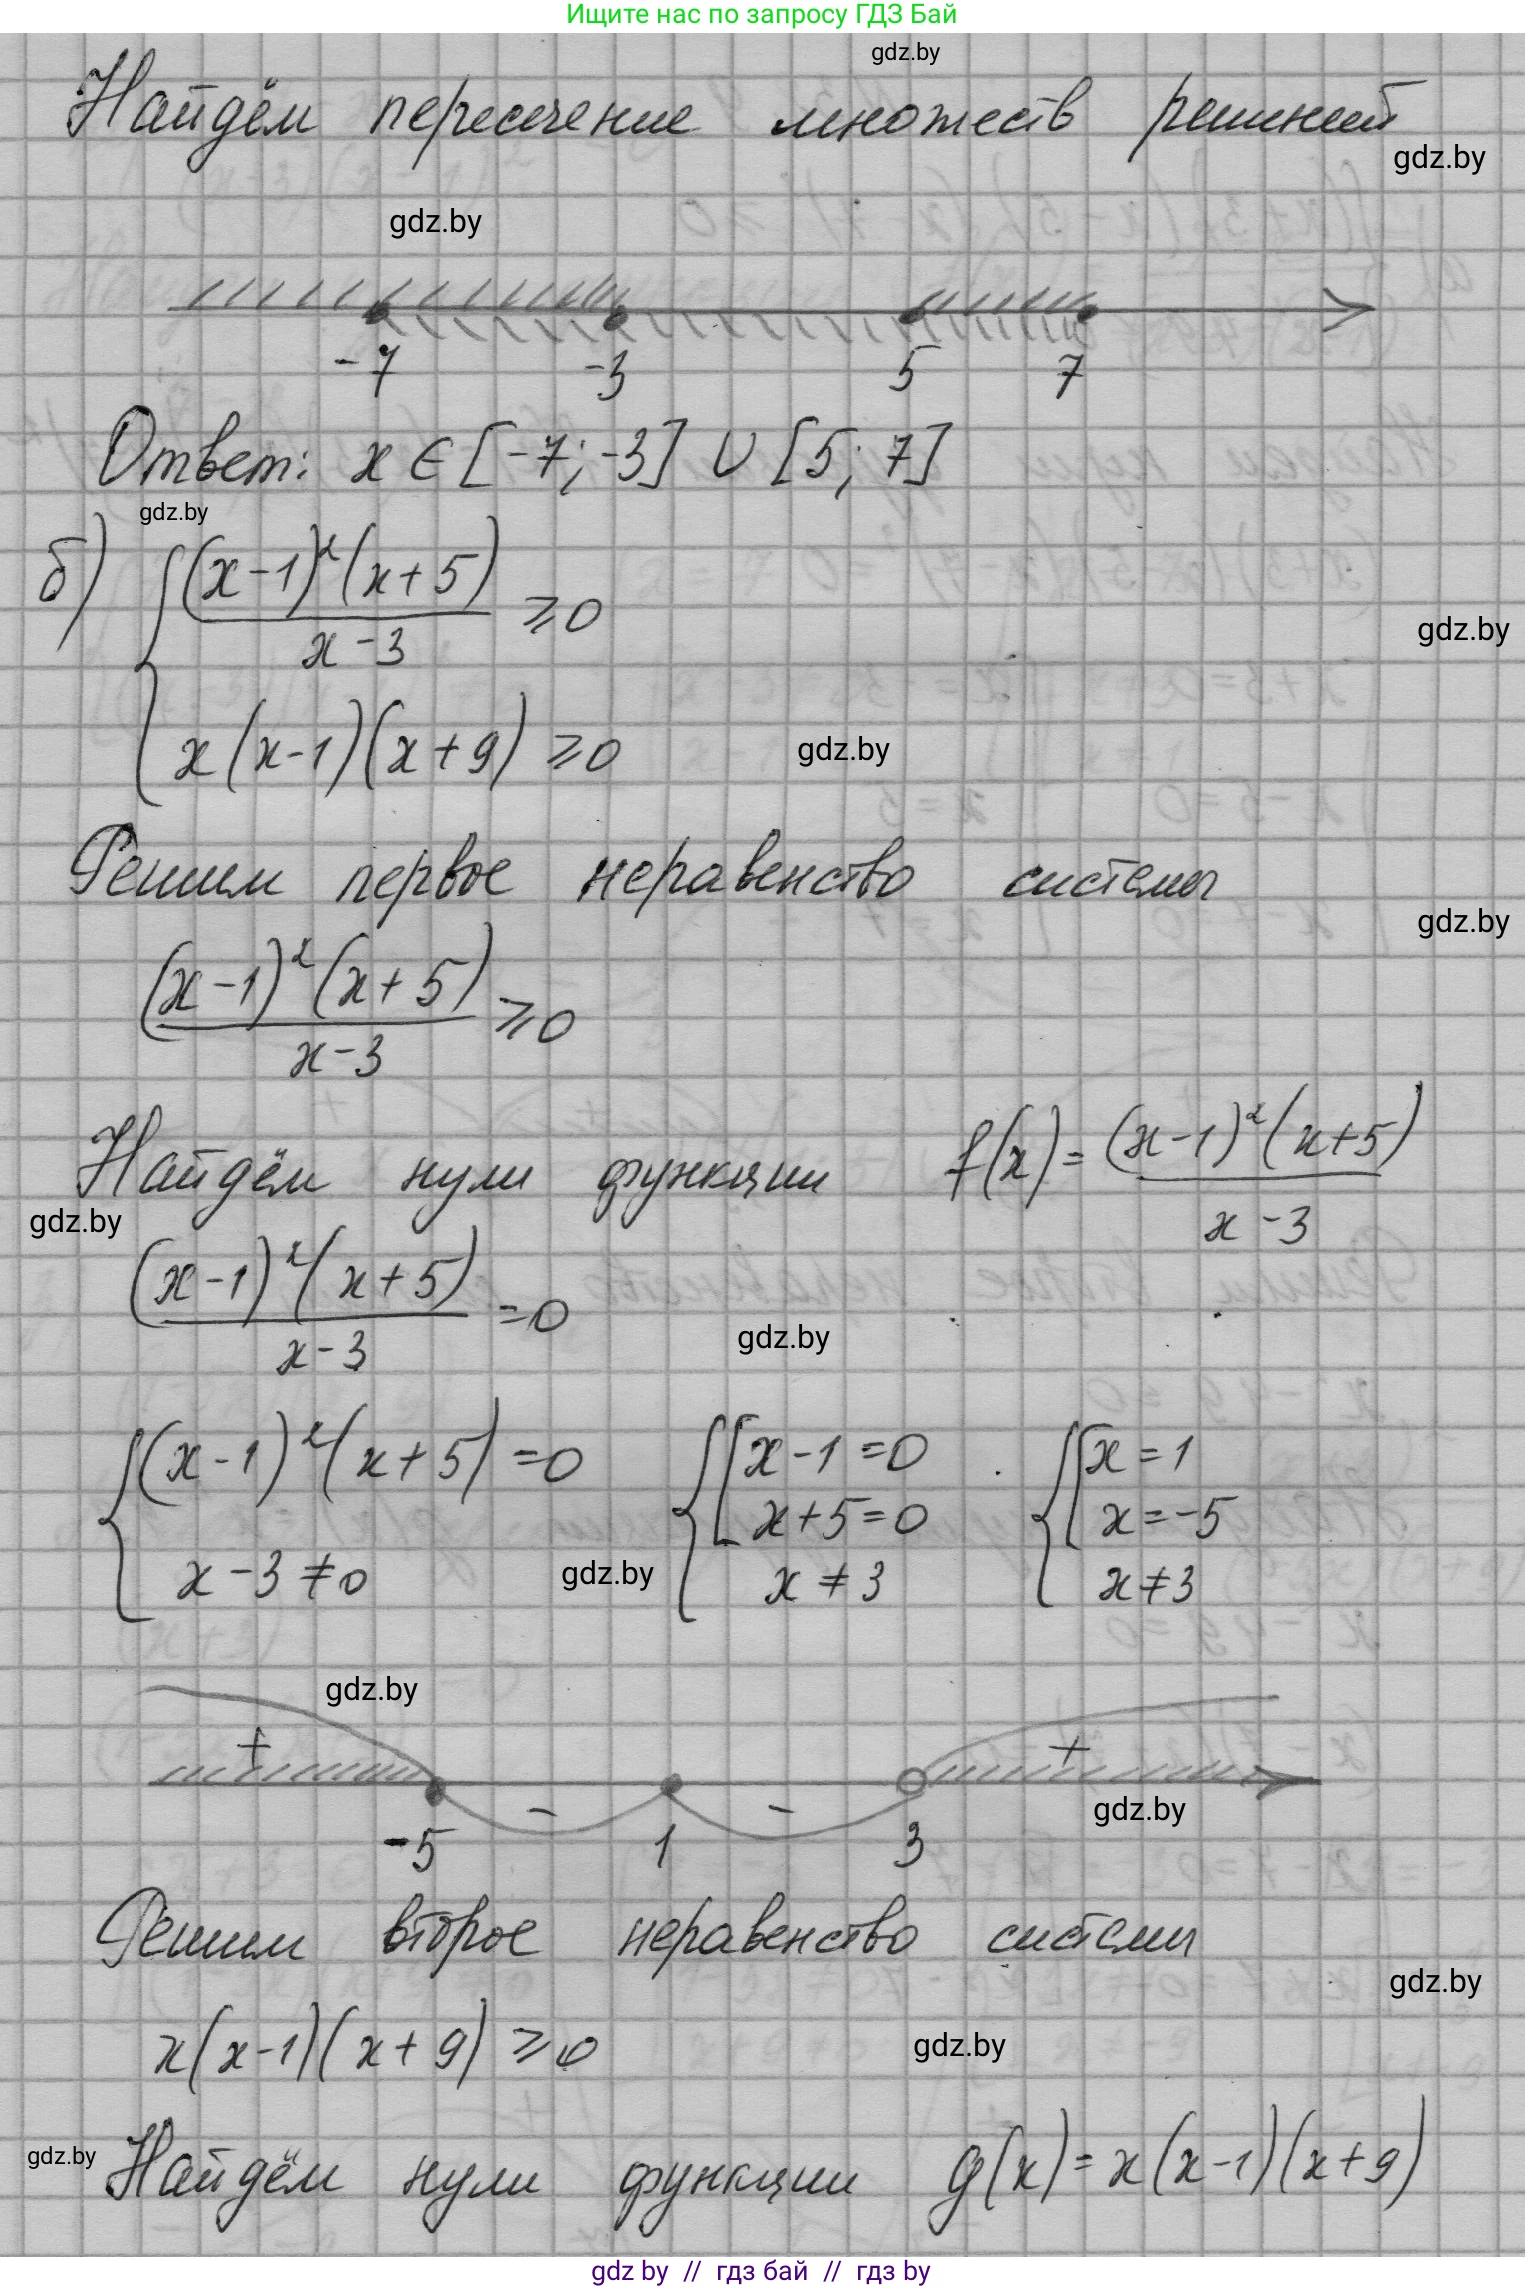 Ищите нас по запросу ГДЗ Бай
gdz.by
Найдём пересечение множеств решений
gdz.by
gdz.by
-7 -3 5 7
Ответ: x ∈ [-7; -3] ∪ [5; 7]
gdz.by
б) { (x-1)²(x+5) / x-3 ⩾ 0
gdz.by
x(x-1)(x+9) ⩾ 0
gdz.by
Решим первое неравенство системы
gdz.by
(x-1)²(x+5) / x-3 ⩾ 0
Найдём нули функции f(x) = (x-1)²(x+5) / x-3
gdz.by
(x-1)²(x+5) / x-3 = 0
gdz.by
{ (x-1)²(x+5) = 0 { [ x-1 = 0 { [ x = 1
x+5 = 0 x = -5
x-3 ≠ 0 gdz.by x ≠ 3 x ≠ 3
gdz.by
+ - - +
gdz.by
-5 1 3
Решим второе неравенство системы
gdz.by
x(x-1)(x+9) ⩾ 0
gdz.by
gdz.by
Найдём нули функции g(x) = x(x-1)(x+9)
gdz by // гдз бай // гдз by